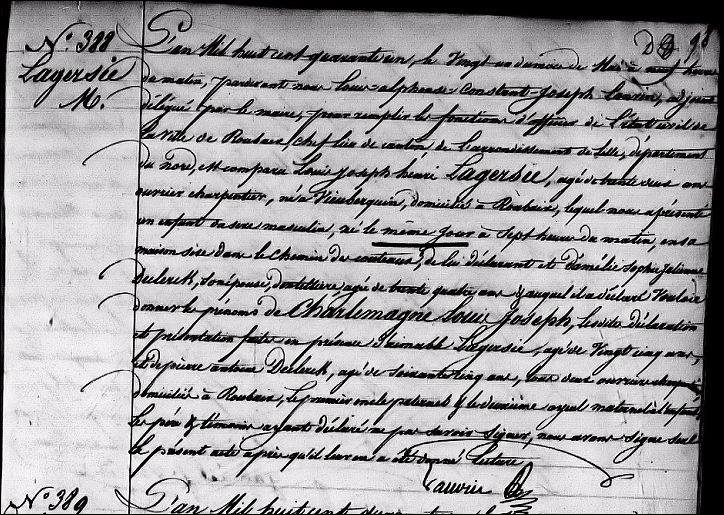 N.° 388
Lagersie
M.
L'an Mil huit cent quarante un, le Vingt un du mois de Mai à neuf heures
du matin, pardevant nous Louis-alphonse Constant Joseph adjoint
délégué par le maire, pour remplir les fonctions d'officier de l'état civil de
la ville de Roubaix, chef lieu de canton de l'arrondissement de Lille, département
du Nord, est comparu Louis Joseph henri Lagersie, agé de trente deux ans
ouvrier charpentier, né à Vieuberquin, domicilié à Roubaix, lequel nous a présenté
un enfant du sexe masculin, né le même jour à Sept heures du matin, en sa
maison sise dans le chemin des couteaux, de lui déclarant et d'amélie Sophie Julienne
Declerck, son épouse, dentelière, agée de trente quatre ans & auquel il a déclaré Vouloir
donner les prénoms de Charlemagne Louis Joseph, lesdites déclaration
et présentation faites en présence d'aimable Lagersie, agé de Vingt cinq ans,
et de pierre antoine Declerck, agé de soixante cinq ans, tous deux ouvriers
domiciliés à Roubaix, le premier oncle paternel & le deuxième ayeul maternel à l'enfant,
les père & témoins ayant déclaré ne pas savoir signer, nous avons signé seul
le présent acte après qu'il leur en a été donné lecture
N.° 389
L'an Mil huit cent